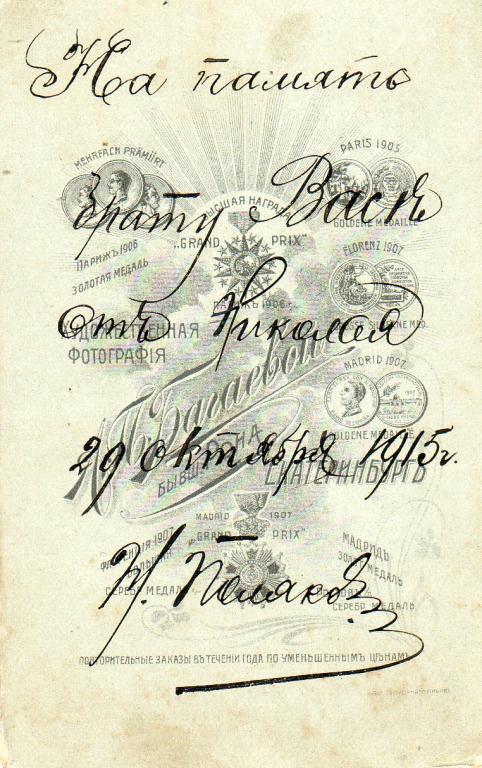 На память
MEHRFACH PRÄMIIRT
PARIS 1905
GOLDENE MEDAILLE
брату Васѣ
ВЫСШАЯ НАГРАДА
„GRAND PRIX"
ПАРИЖЪ 1906
ЗОЛОТАЯ МЕДАЛЬ
FLORENZ 1907
отъ Николая
ПАРИЖЪ 1906
ХУДОЖЕСТВЕННАЯ
ФОТОГРАФІЯ
MADRID 1907
GOLDENE MEDAILLE
29 октября 1915 г.
ЕКАТЕРИНБУРГЪ
MADRID 1907
„GRAND PRIX"
МАДРИДЪ
ЗОЛ. МЕДАЛЬ
СЕРЕБР. МЕДАЛЬ
СЕРЕБР. МЕДАЛЬ
Н. Поляковъ
ПОВТОРИТЕЛЬНЫЕ ЗАКАЗЫ ВЪ ТЕЧЕНІИ ГОДА ПО УМЕНЬШЕННЫМЪ ЦѢНАМЪ